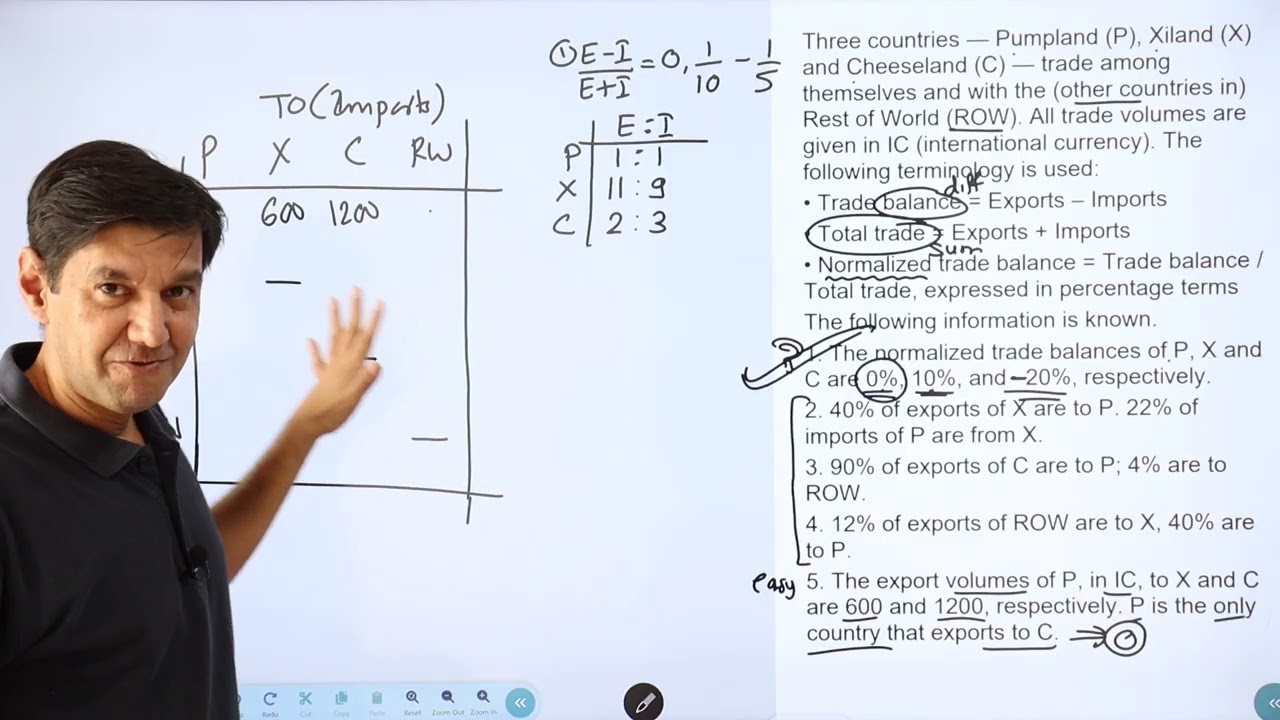 TO (Imports)
P X C RW
600 1200
① E-I / E+I = 0, 1/10 - 1/5
E : I
P 1 : 1
X 11 : 9
C 2 : 3
Three countries — Pumpland (P), Xiland (X)
and Cheeseland (C) — trade among
themselves and with the (other countries in)
Rest of World (ROW). All trade volumes are
given in IC (international currency). The
following terminology is used:
diff
• Trade balance = Exports – Imports
Total trade = Exports + Imports
sum
• Normalized trade balance = Trade balance /
Total trade, expressed in percentage terms
The following information is known.
1. The normalized trade balances of P, X and
C are 0%, 10%, and –20%, respectively.
2. 40% of exports of X are to P. 22% of
imports of P are from X.
3. 90% of exports of C are to P; 4% are to
ROW.
4. 12% of exports of ROW are to X, 40% are
to P.
easy
5. The export volumes of P, in IC, to X and C
are 600 and 1200, respectively. P is the only
country that exports to C.
0
Redo Cut Copy Paste Reset Zoom Out Zoom In